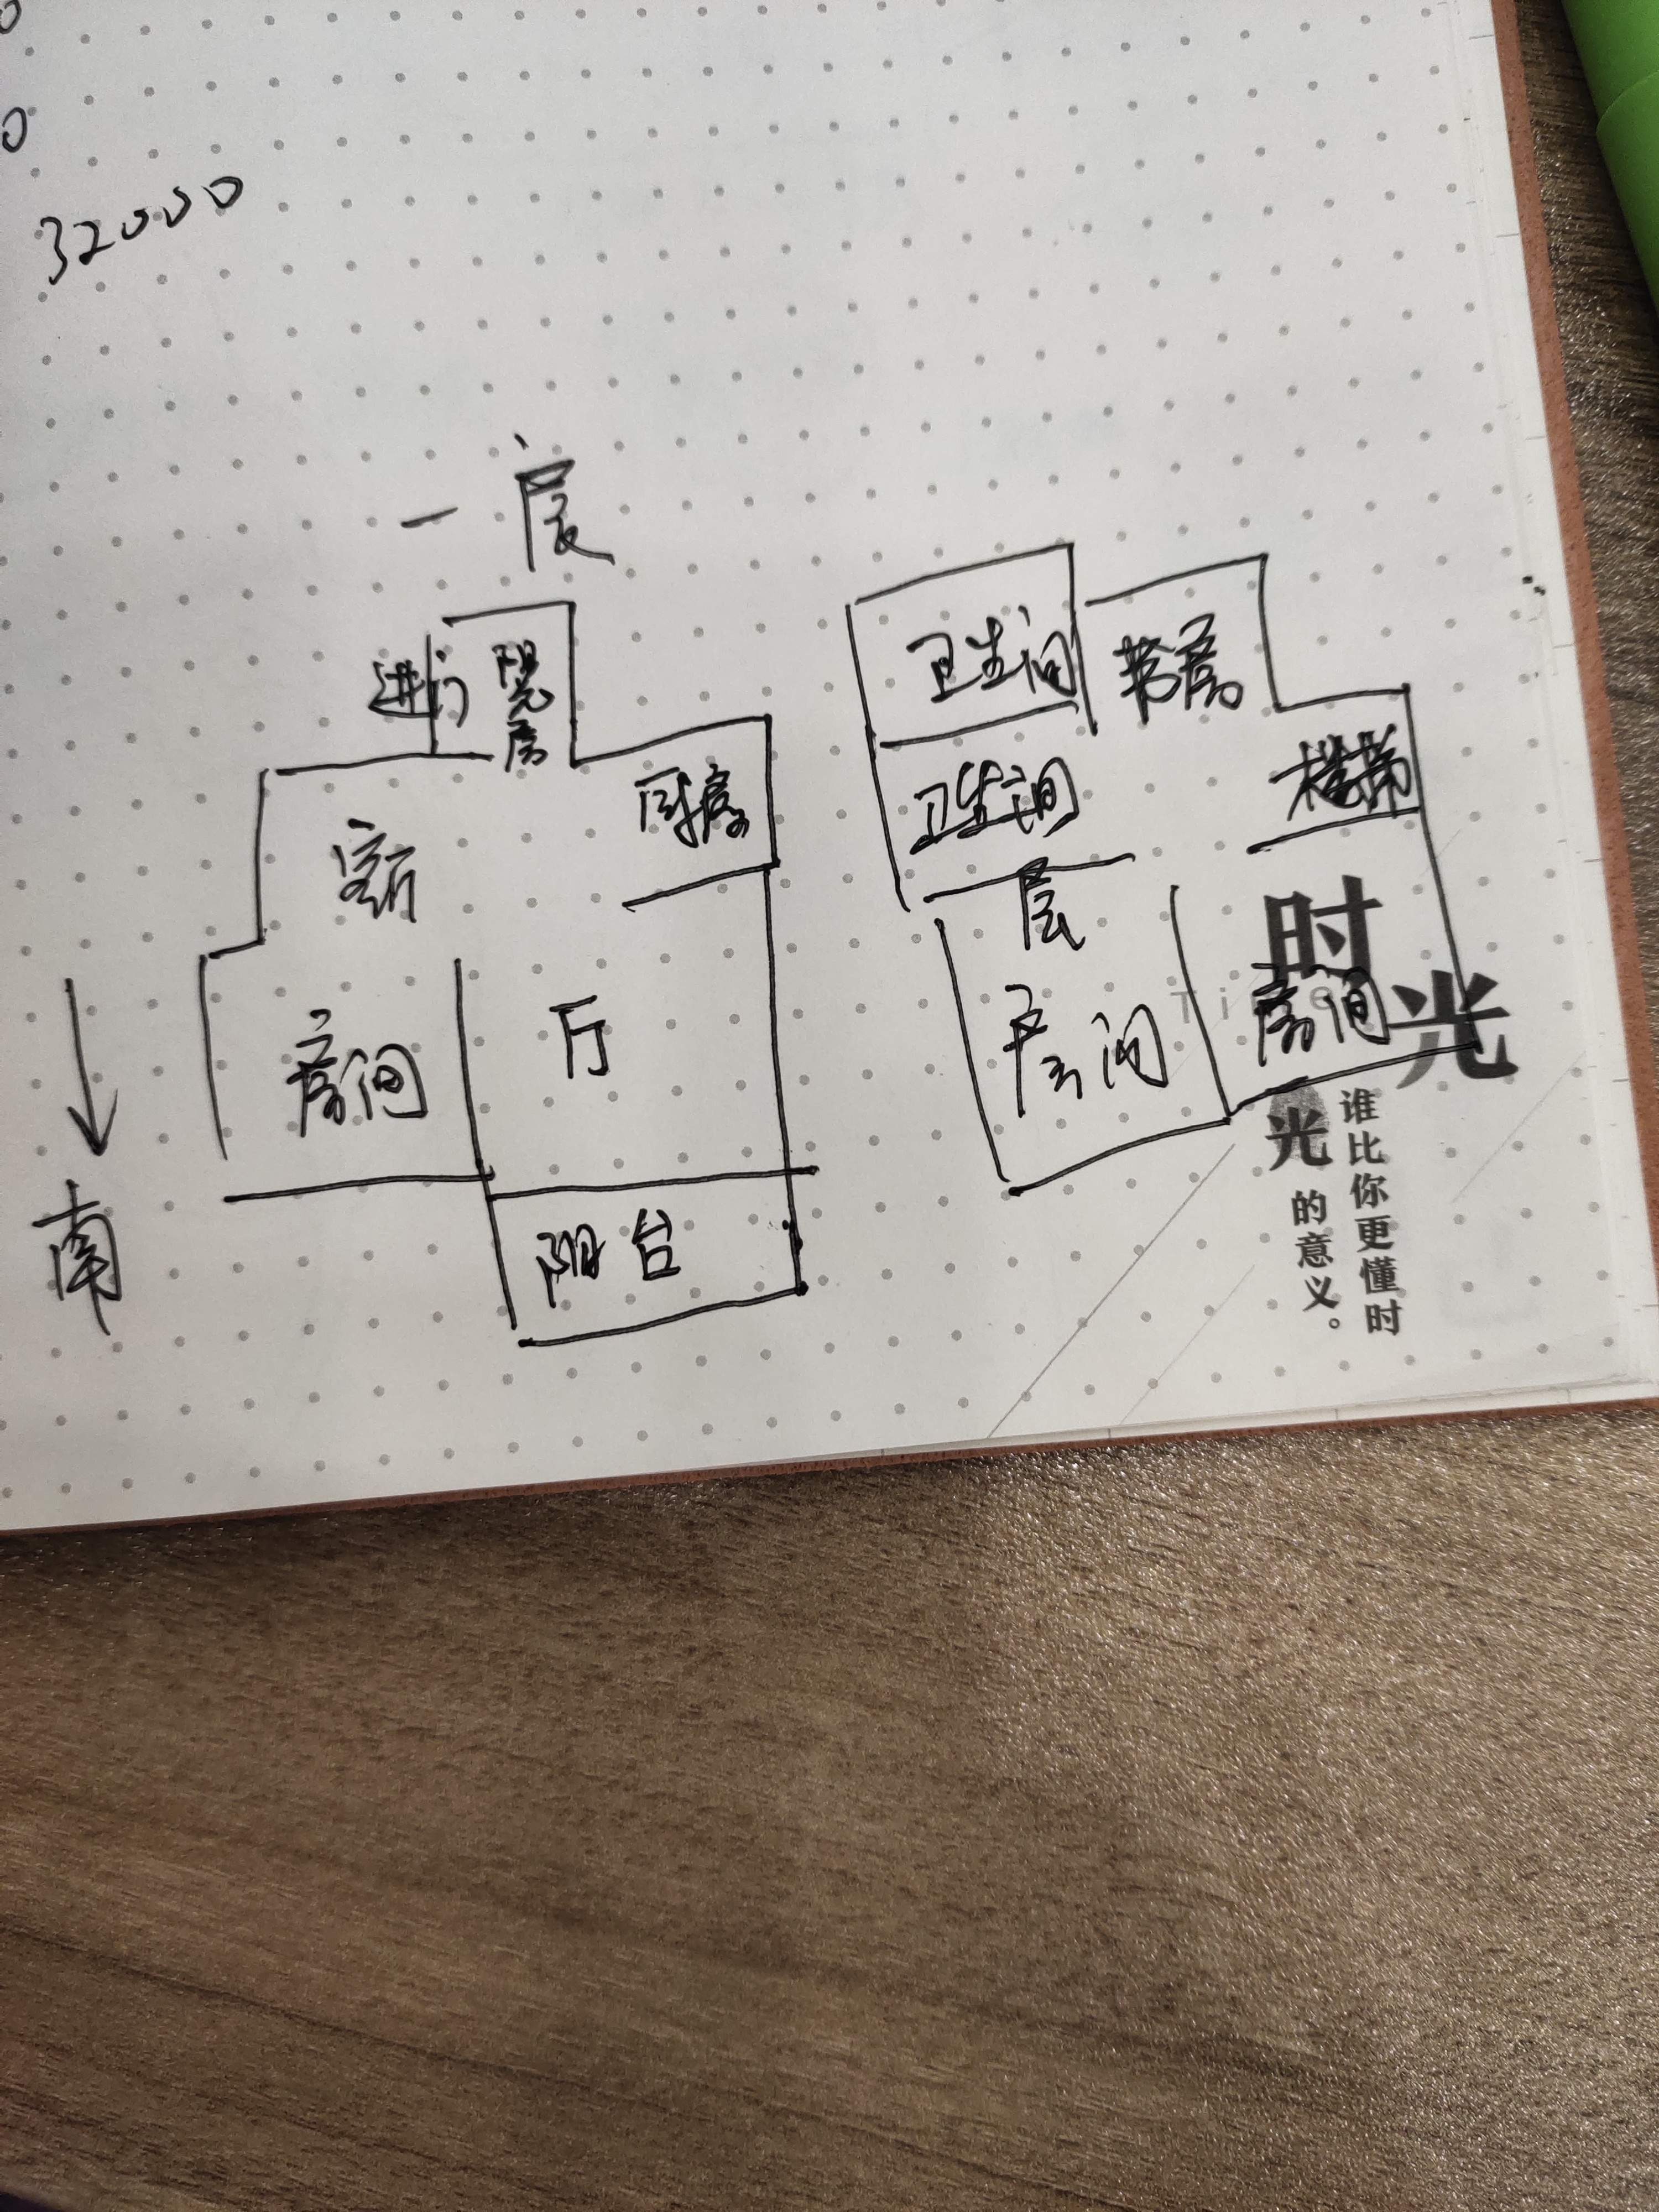 32000
一层
进门
阳光房
厨房
客厅
房间
厅
阳台
南
卫生间
书房
卫生间
楼梯
层
房间
房间
时光
Time
谁比你更懂时
光的意义。